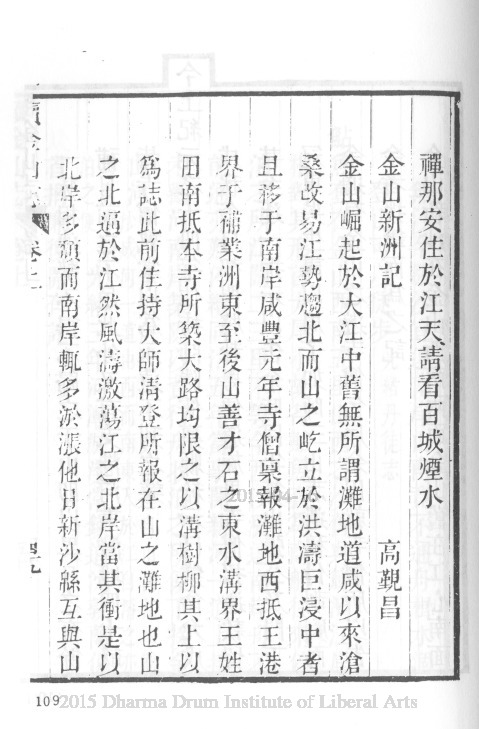 禪那安住於江天請看百城煙水
金山新洲記 高覲昌
金山崛起於大江中舊無所謂灘地道咸以來滄
桑改易江勢趨北而山之屹立於洪濤巨浸中者
且移于南岸咸豐元年寺僧稟報灘地西抵王港
界于補業洲東至後山善才石之東水溝界王姓
田南抵本寺所築大路均限之以溝樹柳其上以
爲誌此前住持大師清登所報在山之灘地也山
之北逼於江然風濤激蕩江之北岸當其衝是以
北岸多頹而南岸輒多淤漲他日新沙緜互與山
金山志 卷上
109
2015 Dharma Drum Institute of Liberal Arts